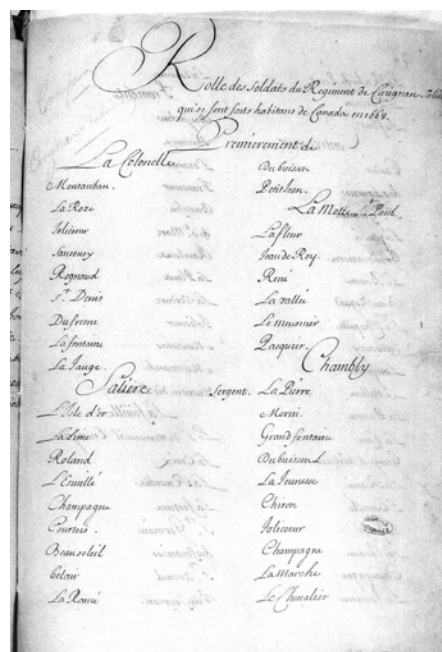 Rolle des Soldats du Regiment de Carignan
qui se sont faits habitans de Canada en 1668.
Premierement de
La Colonelle
Montauban.
La Roze
Jolicœur
Sansoucy
Regnaud
St. Denis
Dufresne
La fontaine
La Jauge.
Salière
L'Isle d'or
La Lime
Roland
L'Eveillé
Champagne
Courtois.
Beausoleil
belair
La Ramé
Dubuisson
Petit Jean.
La Motte St. Paul
La fleur
Jean de Roy.
René
La vallée
Le meusnier
Pasquier.
Chambly
Sergent. La Pierre
Morin.
Grand fontaine
Dubuisson
La Jeunesse
Chiron
Jolicoeur
Champagne
La Marche
Le Chevalier